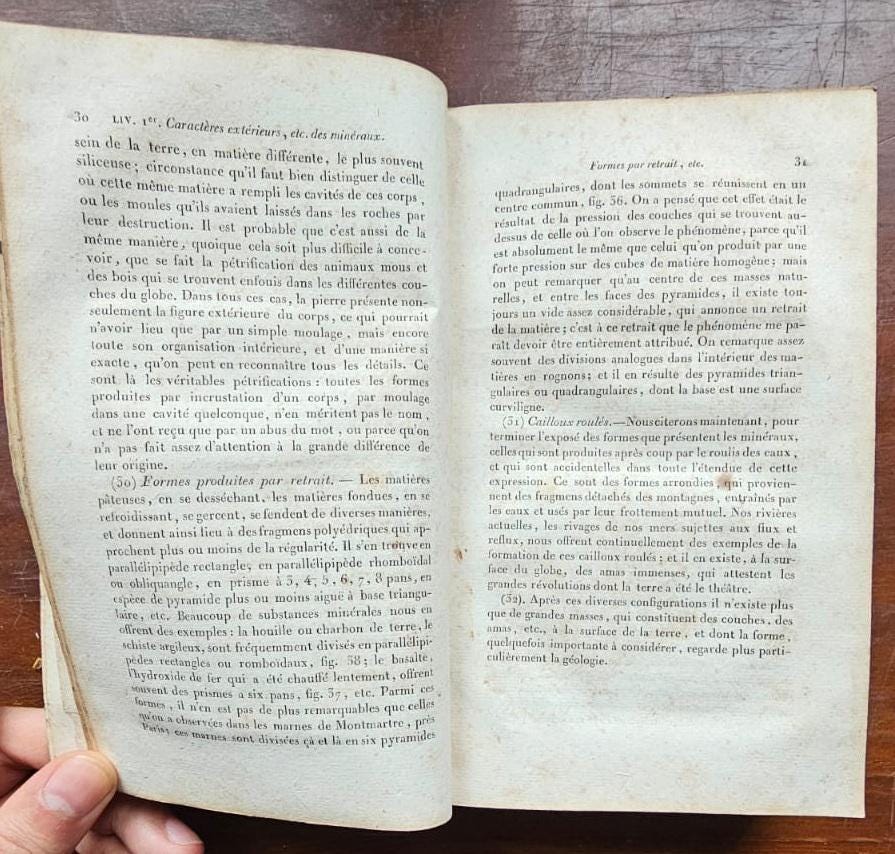 30 LIV. 1er. Caractères extérieurs, etc. des minéraux.
sein de la terre, en matière différente, le plus souvent
siliceuse; circonstance qu'il faut bien distinguer de celle
où cette même matière a rempli les cavités de ces corps,
ou les moules qu'ils avaient laissés dans les roches par
leur destruction. Il est probable que c'est aussi de la
même manière, quoique cela soit plus difficile à conce-
voir, que se fait la pétrification des animaux mous et
des bois qui se trouvent enfouis dans les différentes cou-
ches du globe. Dans tous ces cas, la pierre présente non-
seulement la figure extérieure du corps, ce qui pourrait
n'avoir lieu que par un simple moulage, mais encore
toute son organisation intérieure, et d'une manière si
exacte, qu'on peut en reconnaître tous les détails. Ce
sont là les véritables pétrifications : toutes les formes
produites par incrustation d'un corps, par moulage
dans une cavité quelconque, n'en méritent pas le nom,
et ne l'ont reçu que par un abus du mot, ou parce qu'on
n'a pas fait assez d'attention à la grande différence de
leur origine.
(30) Formes produites par retrait. — Les matières
pâteuses, en se desséchant, les matières fondues, en se
refroidissant, se gercent, se fendent de diverses manières,
et donnent ainsi lieu à des fragmens polyédriques qui ap-
prochent plus ou moins de la régularité. Il s'en trouve en
parallélipipède rectangle, en parallélipipède rhomboïdal
ou obliquangle, en prisme à 3, 4, 5, 6, 7, 8 pans, en
espèce de pyramide plus ou moins aiguë à base triangu-
laire, etc. Beaucoup de substances minérales nous en
offrent des exemples : la houille ou charbon de terre, le
schiste argileux, sont fréquemment divisés en parallélipi-
pèdes rectangles ou romboïdaux, fig. 38; le basalte,
l'hydroxide de fer qui a été chauffé lentement, offrent
souvent des prismes a six pans, fig. 37, etc. Parmi ces
formes, il n'en est pas de plus remarquables que celles
qu'on a observées dans les marnes de Montmartre, près
Paris; ces marnes sont divisées çà et là en six pyramides
Formes par retrait, etc. 31
quadrangulaires, dont les sommets se réunissent en un
centre commun, fig. 36. On a pensé que cet effet était le
résultat de la pression des couches qui se trouvent au-
dessus de celle où l'on observe le phénomène, parce qu'il
est absolument le même que celui qu'on produit par une
forte pression sur des cubes de matière homogène; mais
on peut remarquer qu'au centre de ces masses natu-
relles, et entre les faces des pyramides, il existe tou-
jours un vide assez considérable, qui annonce un retrait
de la matière; c'est à ce retrait que le phénomène me pa-
raît devoir être entièrement attribué. On remarque assez
souvent des divisions analogues dans l'intérieur des ma-
tières en rognons; et il en résulte des pyramides trian-
gulaires ou quadrangulaires, dont la base est une surface
curviligne.
(31) Cailloux roulés.—Nous citerons maintenant, pour
terminer l'exposé des formes que présentent les minéraux,
celles qui sont produites après coup par le roulis des eaux,
et qui sont accidentelles dans toute l'étendue de cette
expression. Ce sont des formes arrondies, qui provien-
nent des fragmens détachés des montagnes, entraînés par
les eaux et usés par leur frottement mutuel. Nos rivières
actuelles, les rivages de nos mers sujettes aux flux et
reflux, nous offrent continuellement des exemples de la
formation de ces cailloux roulés; et il en existe, à la sur-
face du globe, des amas immenses, qui attestent les
grandes révolutions dont la terre a été le théâtre.
(32). Après ces diverses configurations il n'existe plus
que de grandes masses, qui constituent des couches, des
amas, etc., à la surface de la terre, et dont la forme,
quelquefois importante à considérer, regarde plus parti-
culièrement la géologie.